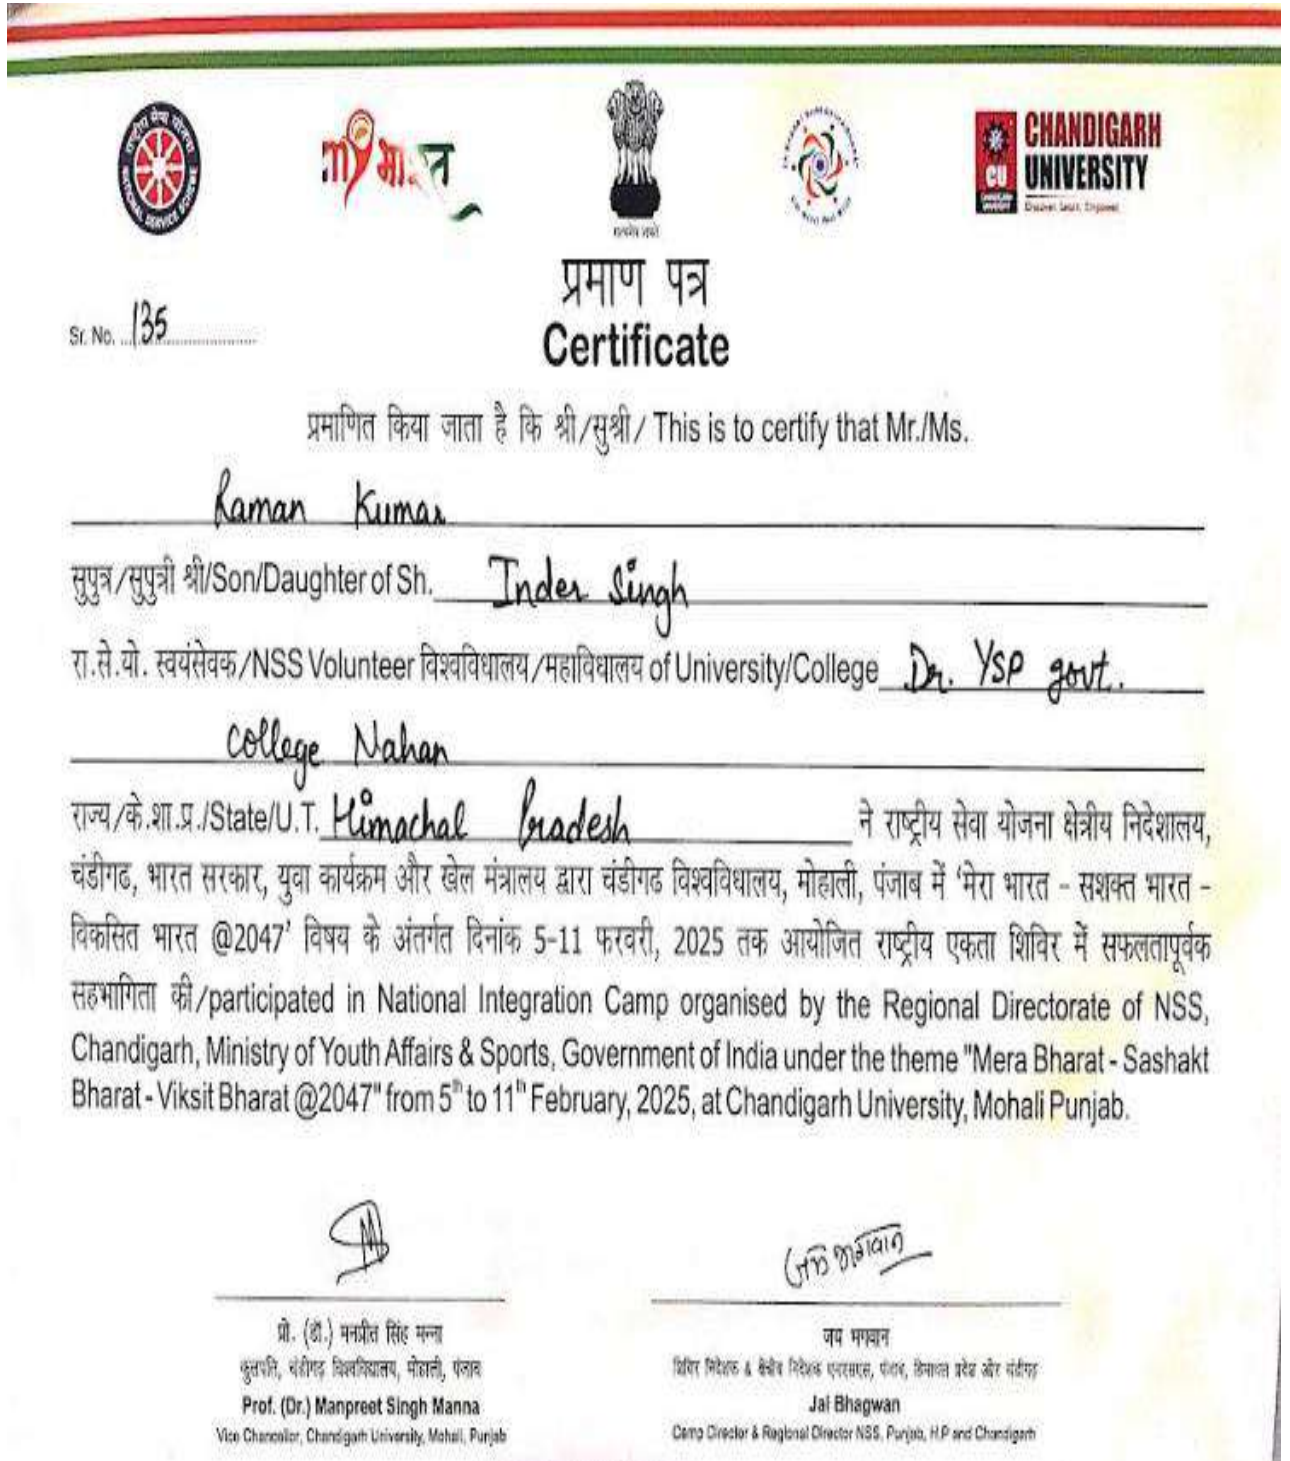 राष्ट्रीय सेवा योजना
NATIONAL SERVICE SCHEME
my भारत
सत्यमेव जयते
CHANDIGARH
UNIVERSITY
CU
CHANDIGARH
UNIVERSITY
Discover. Learn. Empower.
प्रमाण पत्र
Sr. No. 135
Certificate
प्रमाणित किया जाता है कि श्री/सुश्री/ This is to certify that Mr./Ms.
Raman Kumar
सुपुत्र/सुपुत्री श्री/Son/Daughter of Sh. Inder Singh
रा.से.यो. स्वयंसेवक/NSS Volunteer विश्वविधालय/महाविधालय of University/College Dr. YSP govt.
College Nahan
राज्य/के.शा.प्र./State/U.T. Himachal Pradesh ने राष्ट्रीय सेवा योजना क्षेत्रीय निदेशालय,
चंडीगढ, भारत सरकार, युवा कार्यक्रम और खेल मंत्रालय द्वारा चंडीगढ विश्वविधालय, मोहाली, पंजाब में ‘मेरा भारत - सशक्त भारत -
विकसित भारत @2047’ विषय के अंतर्गत दिनांक 5-11 फरवरी, 2025 तक आयोजित राष्ट्रीय एकता शिविर में सफलतापूर्वक
सहभागिता की/participated in National Integration Camp organised by the Regional Directorate of NSS,
Chandigarh, Ministry of Youth Affairs & Sports, Government of India under the theme "Mera Bharat - Sashakt
Bharat - Viksit Bharat @2047" from 5th to 11th February, 2025, at Chandigarh University, Mohali Punjab.
जय भगवान
प्रो. (डॉ.) मनप्रीत सिंह मन्ना
कुलपति, चंडीगढ़ विश्वविद्यालय, मोहाली, पंजाब
Prof. (Dr.) Manpreet Singh Manna
Vice Chancellor, Chandigarh University, Mohali, Punjab
जय भगवान
शिविर निदेशक & क्षेत्रीय निदेशक एनएसएस, पंजाब, हिमाचल प्रदेश और चंडीगढ़
Jai Bhagwan
Camp Director & Regional Director NSS, Punjab, H.P and Chandigarh